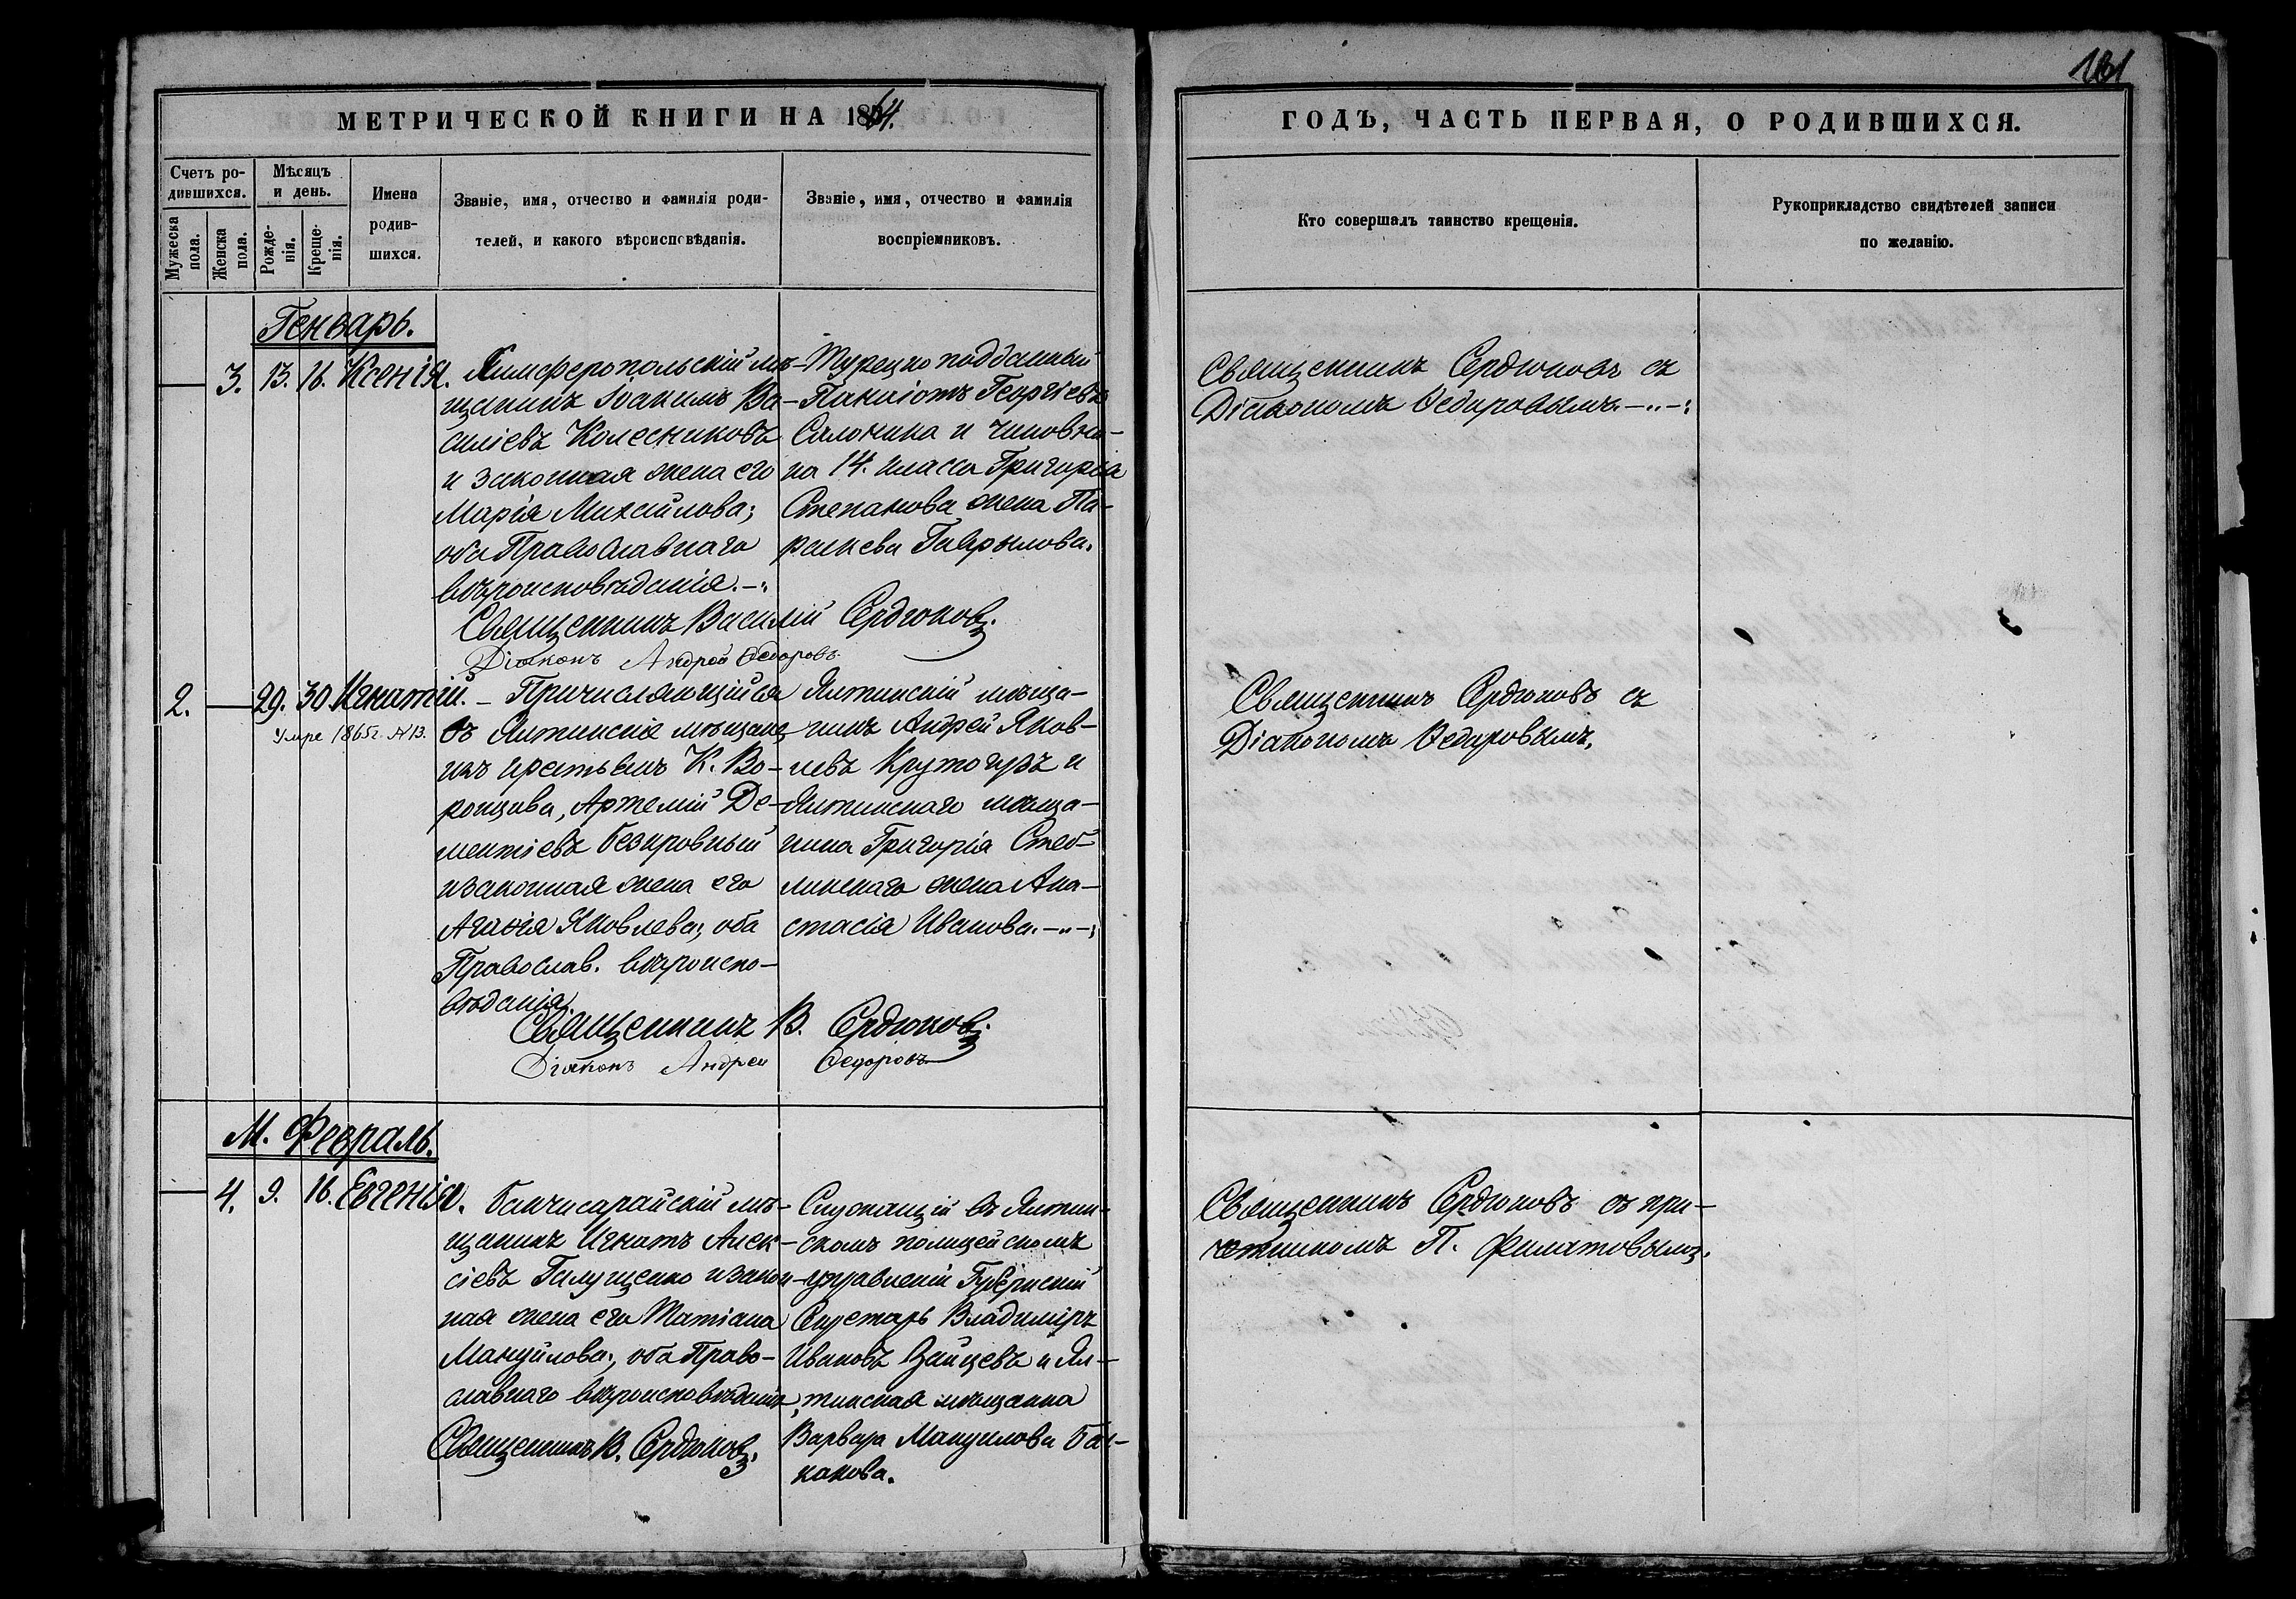 181
МЕТРИЧЕСКОЙ КНИГИ НА 1864.
ГОДЪ, ЧАСТЬ ПЕРВАЯ, О РОДИВШИХСЯ.
Счетъ ро-
дившихся.
Мужеска
пола.
Женска
пола.
Мѣсяцъ
и день.
Рожде-
нія.
Креще-
нія.
Имена
родив-
шихся.
Званіе, имя, отчество и фамилія роди-
телей, и какого вѣроисповѣданія.
Званіе, имя, отчество и фамилія
воспріемниковъ.
Кто совершалъ таинство крещенія.
Рукоприкладство свидѣтелей записи
по желанію.
Генварь.
3. 13. 16. Ксенія.
Симферопольскій мѣ-
щанинъ Іоакимъ Ва-
силіевъ Колесниковъ
и законная жена его
Марія Михайлова;
оба Православнаго
вѣроисповѣданія.
Турецко подданный
Панаіотъ Георгіевъ
Салоника и чиновни-
ка 14. класса Григорія
Степанова жена Па-
раскева Гаврылова.
Священникъ Сердюковъ съ
Діакономъ Ѳедоровымъ.
Священникъ Василій Сердюковъ.
Діаконъ Андрей Ѳедоровъ
2. 29. 30. Игнатій.
Умре 1865г. N 13.
Причисляющійся
въ Ялтинскіе мѣщане
изъ крестьянъ К. Во-
ронцова, Артемій Де-
ментіевъ Безкровный
и законная жена его
Агафія Яковлева; оба
Православ. вѣроиспо-
вѣданія.
Ялтинскій мѣща-
нинъ Андрей Яков-
левъ Крутогузъ и
Ялтинскаго мѣща-
нина Григорія Стеб-
линскаго жена Ана-
стасія Иванова.
Священникъ Сердюковъ съ
Діакономъ Ѳедоровымъ.
Священникъ В. Сердюковъ.
Діаконъ Андрей Ѳедоровъ
М. Февраль.
4. 9. 16. Евгенія.
Бахчисарайскій мѣ-
щанинъ Игнатъ Алек-
сіевъ Галущенко и закон-
ная жена его Татіана
Мануйлова; оба Право-
славнаго вѣроисповѣданія
Служащій въ Ялтин-
скомъ полицейскомъ
управленіи Губернскій
Секретарь Владиміръ
Ивановъ Зайцевъ и Ял-
тинская мѣщанка
Варвара Мануилова Ба-
какова.
Священникъ Сердюковъ съ при-
четникомъ П. Филатовымъ.
Священникъ В. Сердюковъ.